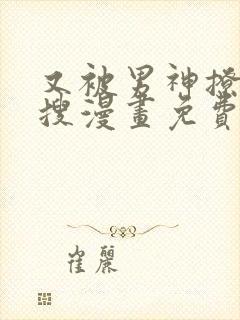 又被男神撩
搜漫畫免費
崔麗